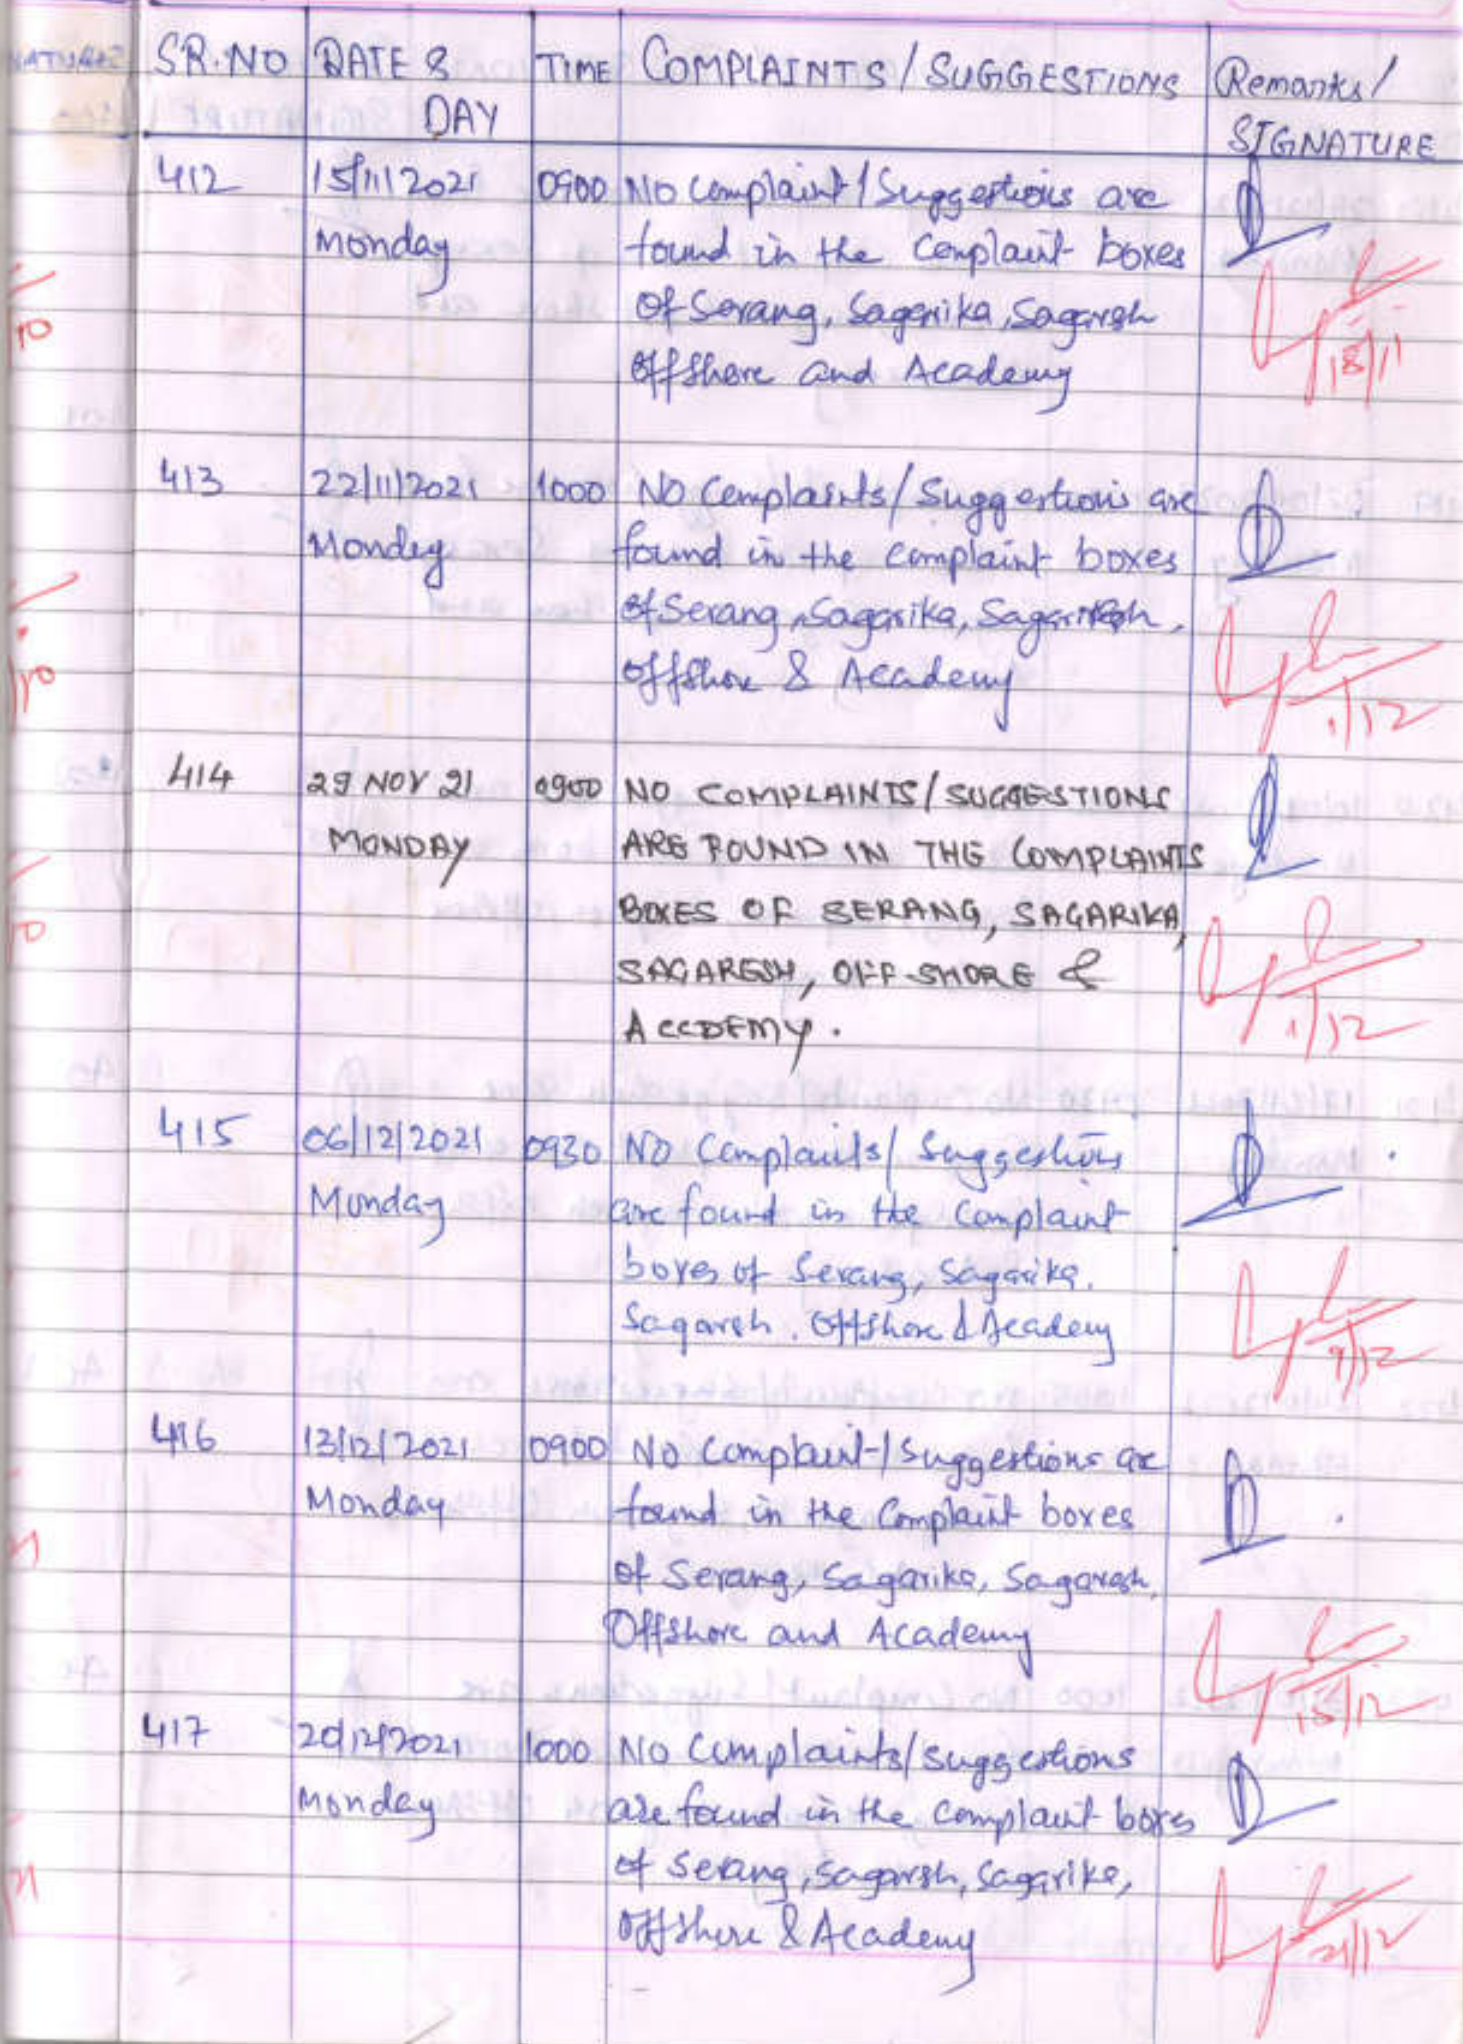 SR.NO DATE & TIME COMPLAINTS / SUGGESTIONS Remarks/
DAY SIGNATURE
412 15/11/2021 0900 NO Complaint / Suggestions are
Monday found in the Complaint boxes
of Serang, Sagarika, Sagarsh
Offshore and Academy
18/11
413 22/11/2021 1000 NO Complaints/ Suggestions are
Monday found in the complaint boxes
of Serang, Sagarika, Sagarsh,
offshore & Academy
1/12
414 29 NOV 21 0900 NO COMPLAINTS/SUGGESTIONS
MONDAY ARE FOUND IN THE COMPLAINTS
BOXES OF SERANG, SAGARIKA,
SAGARESH, OFF-SHORE &
ACCDEMY.
1/12
415 06/12/2021 0930 NO Complaints/ Suggestions
Monday are found in the Complaint
boxes of Serang, Sagarika,
Sagarsh. Offshore & Academy
9/12
416 13/12/2021 0900 No Complaint / Suggestions are
Monday found in the Complaint boxes
of Serang, Sagarika, Sagarsh,
Offshore and Academy
15/12
417 20/12/2021 1000 No Complaints/suggestions
Monday are found in the Complaint boxes
of Serang, Sagarsh, Sagarika,
offshore & Academy
21/12